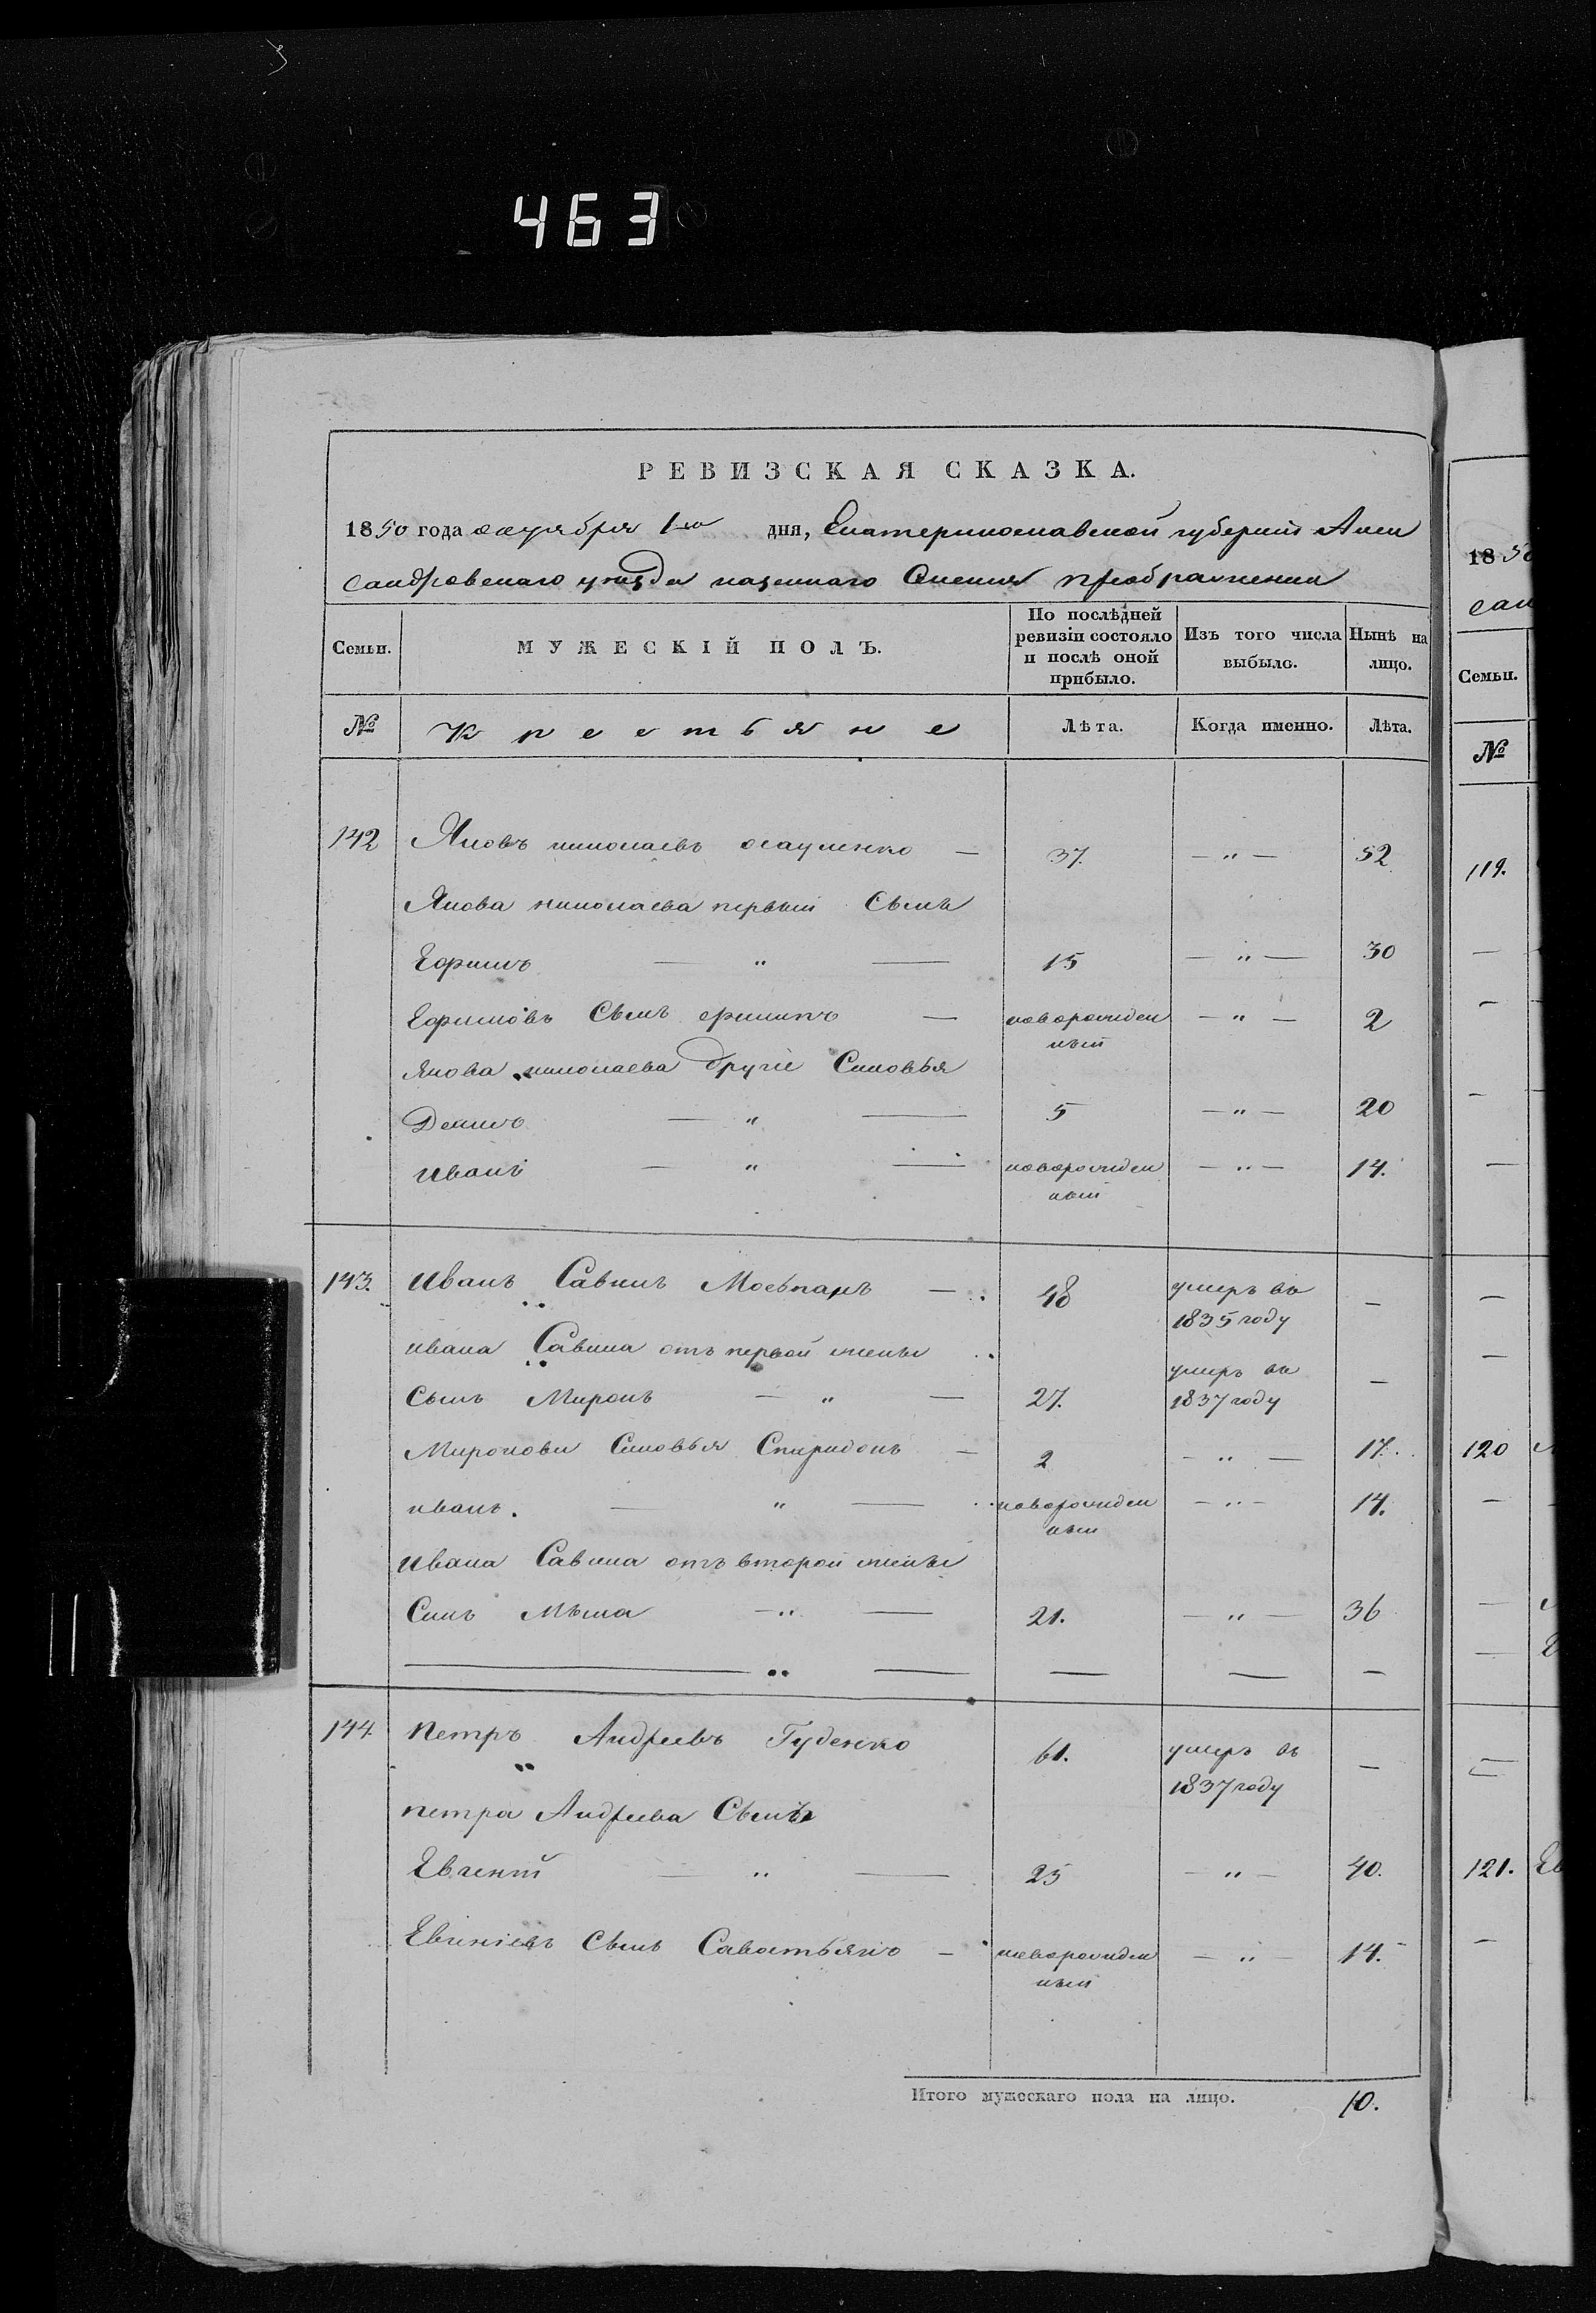 463
РЕВИЗСКАЯ СКАЗКА.
1850 года октября 1го дня, Екатеринославской губерніи Алек
сандровскаго уѣзда казеннаго Селенія преображенки
Семьи.
МУЖЕСКІЙ ПОЛЪ.
По послѣдней ревизіи состояло и послѣ оной прибыло.
Изъ того числа выбыло.
Нынѣ на лицо.
№ Крестьяне Лѣта. Когда именно. Лѣта.
142 Яковъ николаевъ осауленко — 37. — " — 52
Якова николаева первый Сынъ
Ефимъ — " — 15 — " — 30
Ефимовъ Сынъ филипъ — новорожден — " — 2
ный
Якова николаева другіе Синовья
Демидъ — " — 5 — " — 20
иванъ — " — новорожден — " — 14.
ный
143. иванъ Савинъ Моспанъ — 48 умеръ въ —
1835 году
ивана Савина отъ первой жены
Сынъ Миронъ — " — 27. умеръ въ —
1837 году
Миронови Синовья Спиридонъ — 2 — " — 17.
иванъ. — " — новорожден — " — 14.
ный
ивана Савина отъ второй жены
Синъ — " — 21. — " — 36
— " — — — —
144 петръ Андреевъ Гуденко 61. умеръ въ —
1837 году
петра Андреева Сынъ
Евгеній — " — 25 — " — 40.
Евгеніевъ Сынъ Савостьянъ — новорожден — " — 14.
ный
Итого мужескаго пола на лицо. 10.
1850
сан
Семьи.
№
119.
120
121. Ев